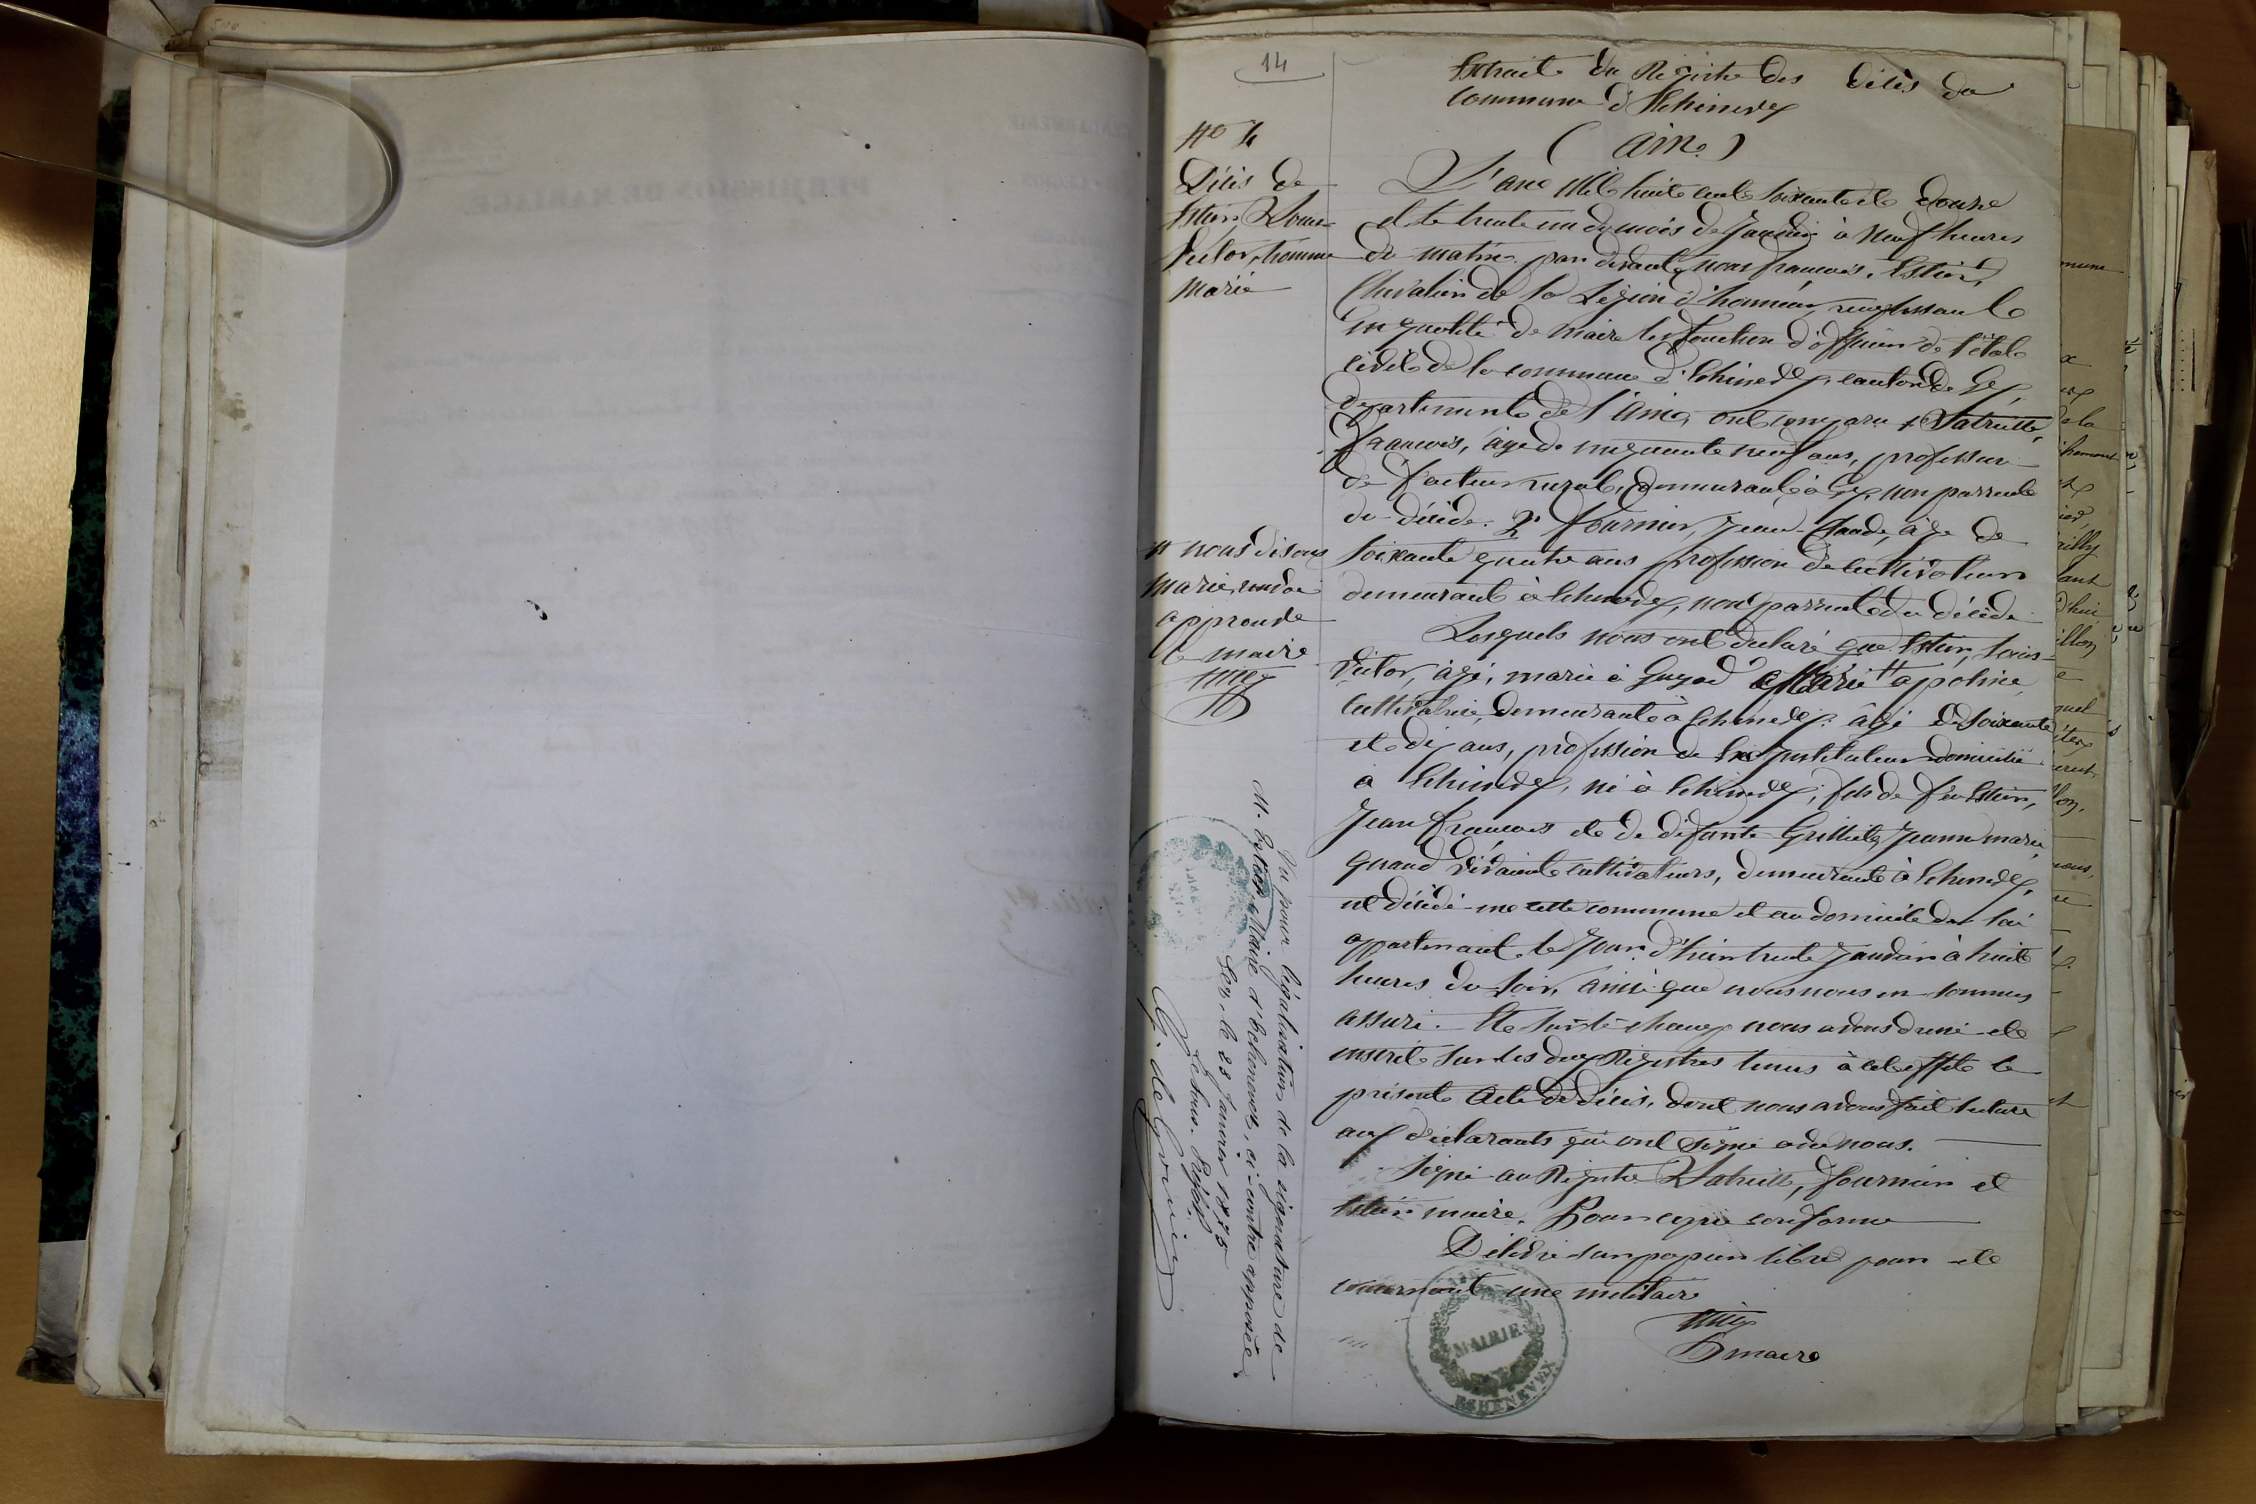 14
Extrait du Registre des Décès da
commune d'Echenevex
(Ain.)
No 4
Décès de
Estier, Louis
Victor, homme
marié
L'an Mil huit cent soixante et douze
et le trente un du mois de Janvier à neuf heures
du matin. par devant nous françois, Estier,
Chevalier de la Légion d'honneur, remplissant le
en qualité de maire les fonction d'officier de l'état
civil de la commune d'Echenevex, canton de Gex,
Département de l'Ain, ont comparu 1
françois, âgé de cinquante neuf ans, professeur
de facteur rural, demeurant à Gex, non parrent
du décédé. 2° fournier, Jean-Claude, âgé de
soixante quatre ans profession de cultivateur
demeurant à Echenevex, non parrent du décédé
Lesquels nous ont déclaré que Estier, Louis
Victor, âgé, marié à Guyod Marie apoline
cultivatrice, demeurante à Echenevex, âgé de soixante
et dix ans, profession de instituteur domicilié
à Echenevex, né à Echenevex, fils de feu Estier,
Jean françois et de défunte Jeanne marie
quand vivaient cultivateurs, demeurant à Echenevex,
est décédé cette commune et au domicile da lui
appartenant le Jour d'hier trente Janvier à huit
heures du soir, ainsi que nous nous en sommes
assuré. Et sur le champ nous avons dressé et
inscrit sur les deux Registres tenus à cet effet le
présent acte de décès, dont nous avons fait lecture
aux déclarants qui ont signé avec nous.
Signé au Registre fournier et
Estier maire. Pour copie conforme
Délivré sur papier libre pour
concernant une militaire
Le maire
nous disons
marie
approuvé
le maire
Vu pour légalisation de la signature de
M. Estier, Maire d'Echenevex, ci-contre apposée
Gex, le 23 Janvier 1875
Le Sous-Préfet
MAIRIE
ECHENEVEX
PERMISSION DE MARIAGE